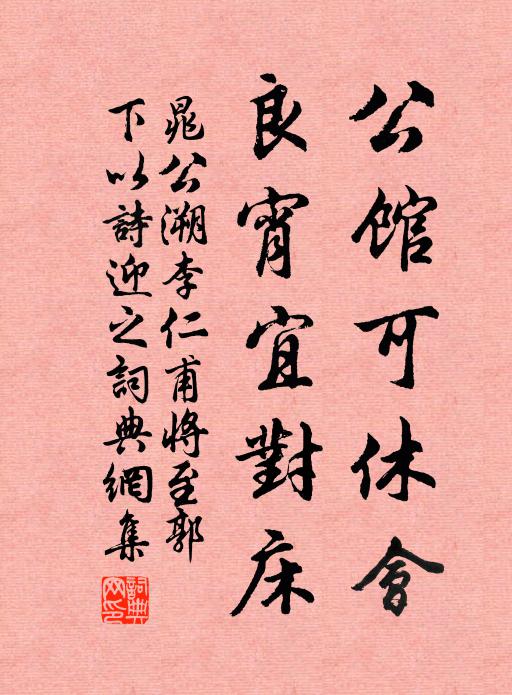 公館可休會
良宵宜對床
晁公溯李仁甫將至郭
下以詩迎之詞典網集
詞典網印